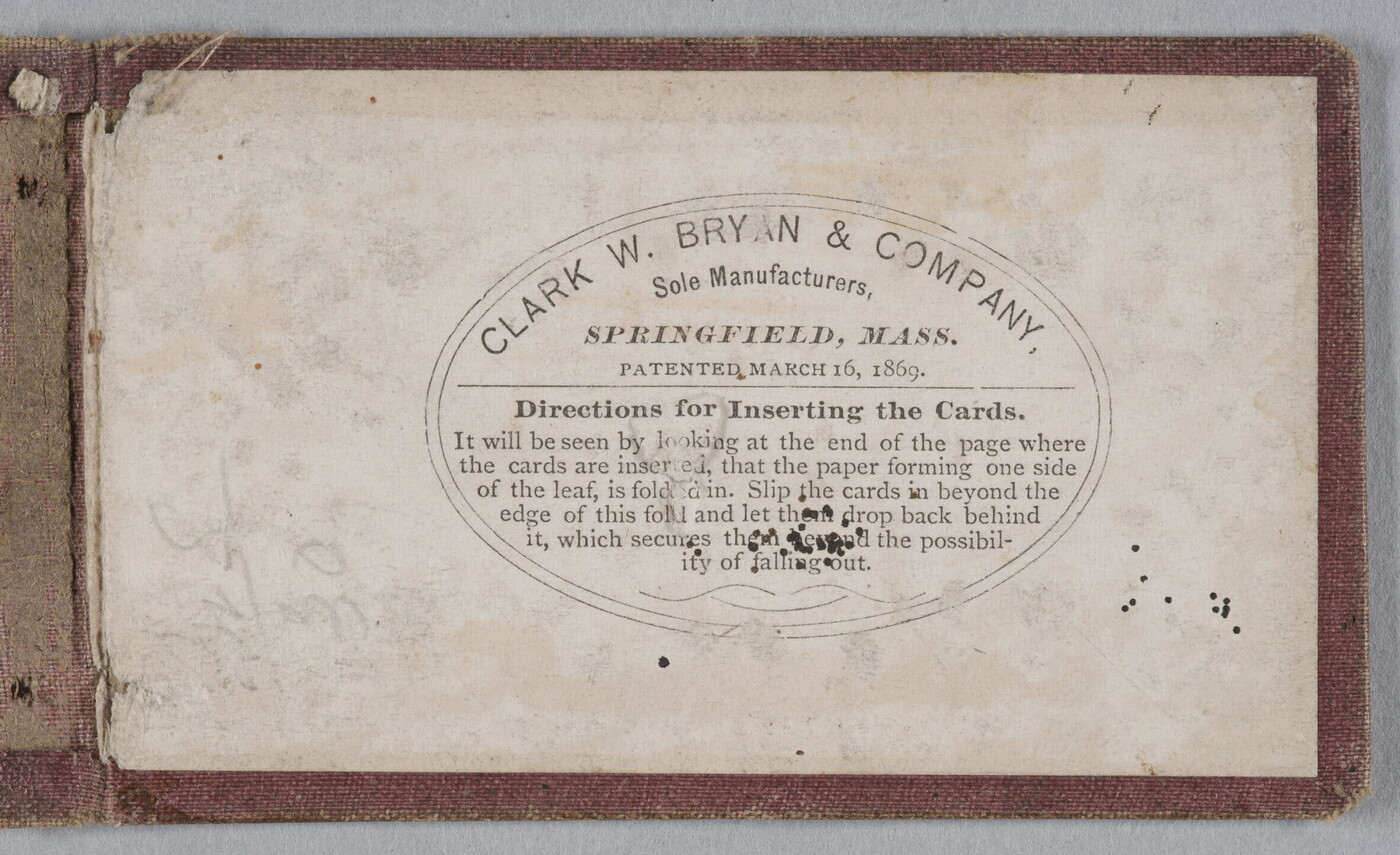 CLARK W. BRYAN & COMPANY,
Sole Manufacturers,
SPRINGFIELD, MASS.
PATENTED MARCH 16, 1869.
Directions for Inserting the Cards.
It will be seen by looking at the end of the page where
the cards are inserted, that the paper forming one side
of the leaf, is folded in. Slip the cards in beyond the
edge of this fold and let them drop back behind
it, which secures them beyond the possibil-
ity of falling out.